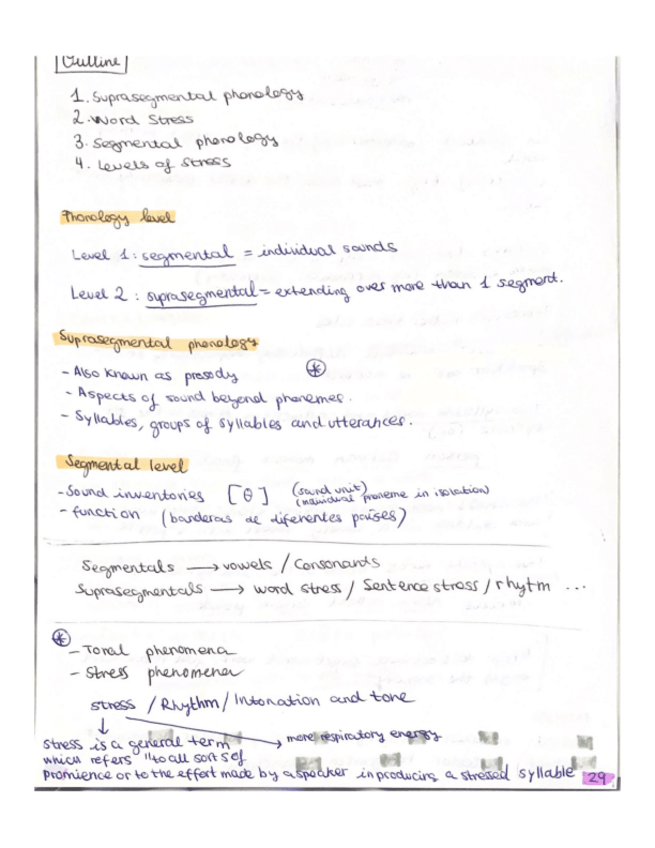 Outline
1. Suprasegmental phonology
2. Word Stress
3. Segmental phonology
4. Levels of Stress
Phonology level
Level 1: segmental = individual sounds
Level 2: suprasegmental = extending over more than 1 segment.
Suprasegmental phonology
- Also known as prosody
- Aspects of sound beyond phonemes.
- Syllables, groups of syllables and utterances.
Segmental level
- Sound inventories [θ] (sound unit) (individual phoneme in isolation)
- function (banderas de diferentes países)
Segmentals → vowels / Consonants
Suprasegmentals → word stress / Sentence stress / rhytm ...
- Tonal phenomena
- Stress phenomena
stress / Rhythm / Intonation and tone
→ more respiratory energy
stress is a general term
which refers "to all sorts of
promience or to the effort made by a speaker in producing a stressed syllable
29